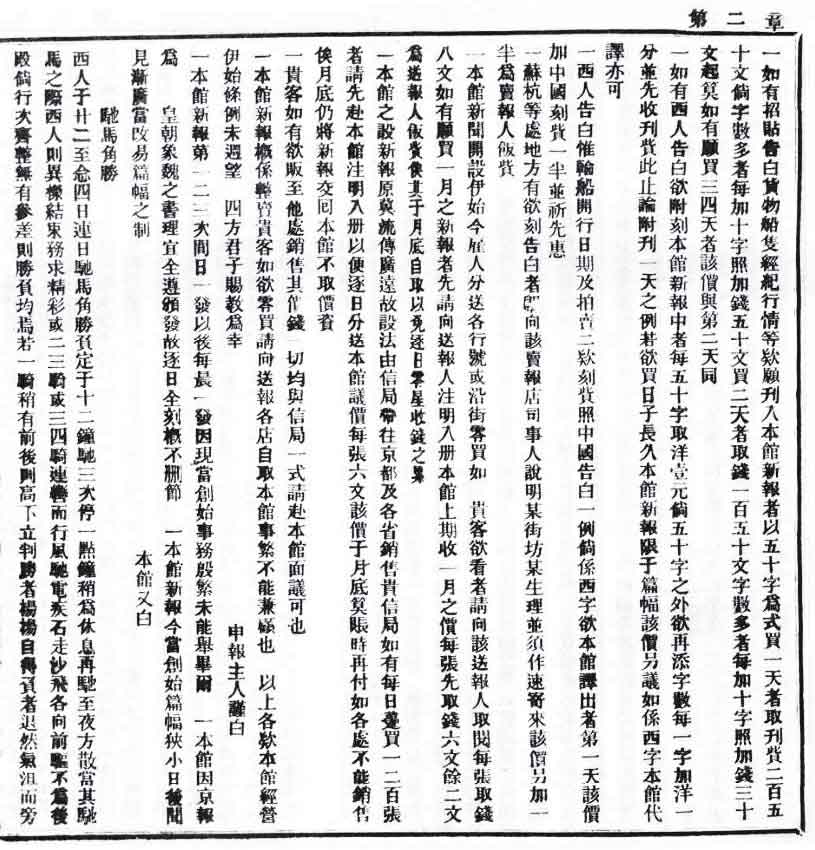 第二章
一如有招貼告白貨物船隻經紀行情等欵願刋入本館新報者以五十字為式買一天者取刋費二百五
十文倘字數多者每加十字照加錢五十文買二天者取錢一百五十文字數多者每加十字照加錢三十
文起算如有願買三四天者該價與第二天同
一如有西人告白欲附刻本館新報中者每五十字取洋壹元倘五十字之外欲再添字數每一字加洋一
分並先收刋費此止論附刋一天之例若欲買日子長久本館新報限于篇幅該價另議如係西字本館代
譯亦可
一西人告白惟輪船開行日期及拍賣二欵刻費照中國告白一例倘係西字欲本館譯出者第一天該價
加中國刻費一半並祈先惠
一蘇杭等處地方有欲刻告白者卽向該賣報店司事人說明某街坊某生理並須作速寄來該價另加一
半為賣報人飯貲
一本舘新聞開設伊始今雇人分送各行號或沿街零買如 貴客欲看者請向該送報人取閱每張取錢
八文如有願買一月之新報者先請向送報人注明入册本館上期收一月之價每張先取錢六文餘二文
為送報人飯貲俟其于月底自取以免逐日零星收錢之累
一本館之設新報原冀流傳廣遠故設法由信局帶往京都及各省銷售貴信局如有每日躉買一二百張
者請先赴本館注明入册以便逐日分送本館議價每張六文該價于月底算賬時再付如各處不能銷售
俟月底仍將新報交囘本館不取價資
一貴客如有欲販至他處銷售其價錢一切均與信局一式請赴本館面議可也
一本館新報槪係整賣貴客如欲零買請向送報各店自取本館事繁不能兼顧也 以上各欵本館經營
伊始條例未週望 四方君子賜敎為幸
申報主人謹白
一本館新報第一二三次間日一發以後每晨一發因現當創始事務殷繁未能舉舉爾 一本館因京報
為 皇朝象魏之書理宜全遵頒發故逐日全刻槪不删節 一本館新報今當創始篇幅狹小日後聞
見漸廣當改易篇幅之制
本館又白
馳馬角勝
西人于廿二至念四日連日馳馬角勝負定于十二鐘馳三次停一點鐘稍為休息再馳至夜方散當其馳
馬之際西人則異樣結束務求精彩或二三騎或三四騎連轡而行風馳電疾石走沙飛各向前驅不為後
殿倘行次齊整無有參差則勝負均焉若一騎稍有前後則高下立判勝者楊楊自得負者退然氣沮而旁